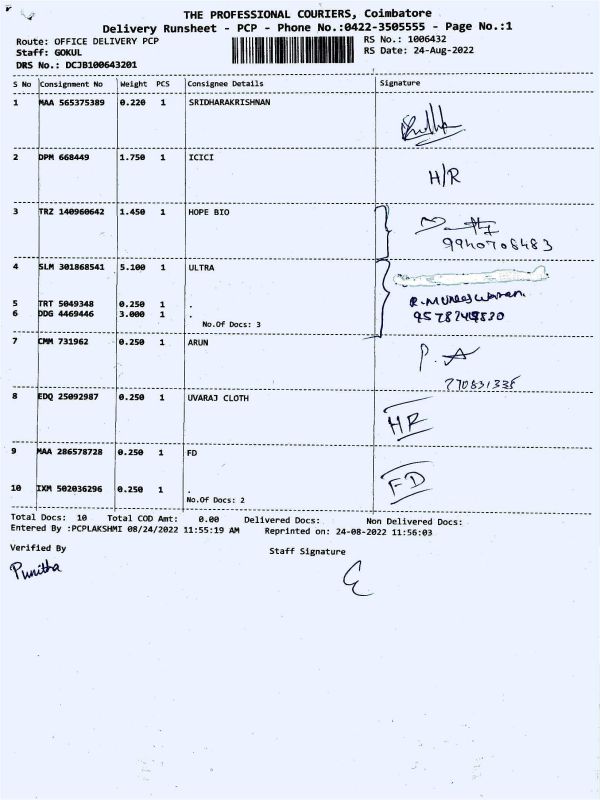 THE PROFESSIONAL COURIERS, Coimbatore
Delivery Runsheet - PCP - Phone No.:0422-3505555 - Page No.:1
Route: OFFICE DELIVERY PCP
RS No.: 1006432
Staff: GOKUL
RS Date: 24-Aug-2022
DRS No.: DCJB100643201
S No Consignment No Weight PCS Consignee Details Signature
1 MAA 565375389 0.220 1 SRIDHARAKRISHNAN
2 DPM 668449 1.750 1 ICICI
H/R
3 TRZ 140960642 1.450 1 HOPE BIO
9940706483
4 SLM 301868541 5.100 1 ULTRA
R.Muneeswaran.
5 TRT 5049348 0.250 1 .
6 DDG 4469446 3.000 1 .
No.Of Docs: 3
7 CMM 731962 0.250 1 ARUN
P. A
8 EDQ 25092987 0.250 1 UVARAJ CLOTH
HR
9 MAA 286578728 0.250 1 FD
FD
10 IXM 502036296 0.250 1 .
No.Of Docs: 2
Total Docs: 10 Total COD Amt: 0.00 Delivered Docs: Non Delivered Docs:
Entered By :PCPLAKSHMI 08/24/2022 11:55:19 AM Reprinted on: 24-08-2022 11:56:03
Verified By
Staff Signature
Punitha